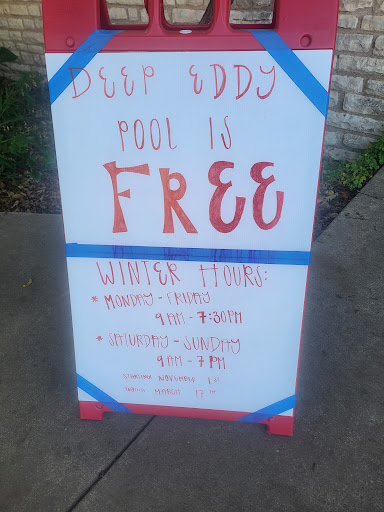 DEEP EDDY
POOL IS
FREE
WINTER HOURS:
* MONDAY - FRIDAY
9 AM - 7:30 PM
* SATURDAY - SUNDAY
9 AM - 7 PM
STARTING NOVEMBER 1ST
MARCH 17TH